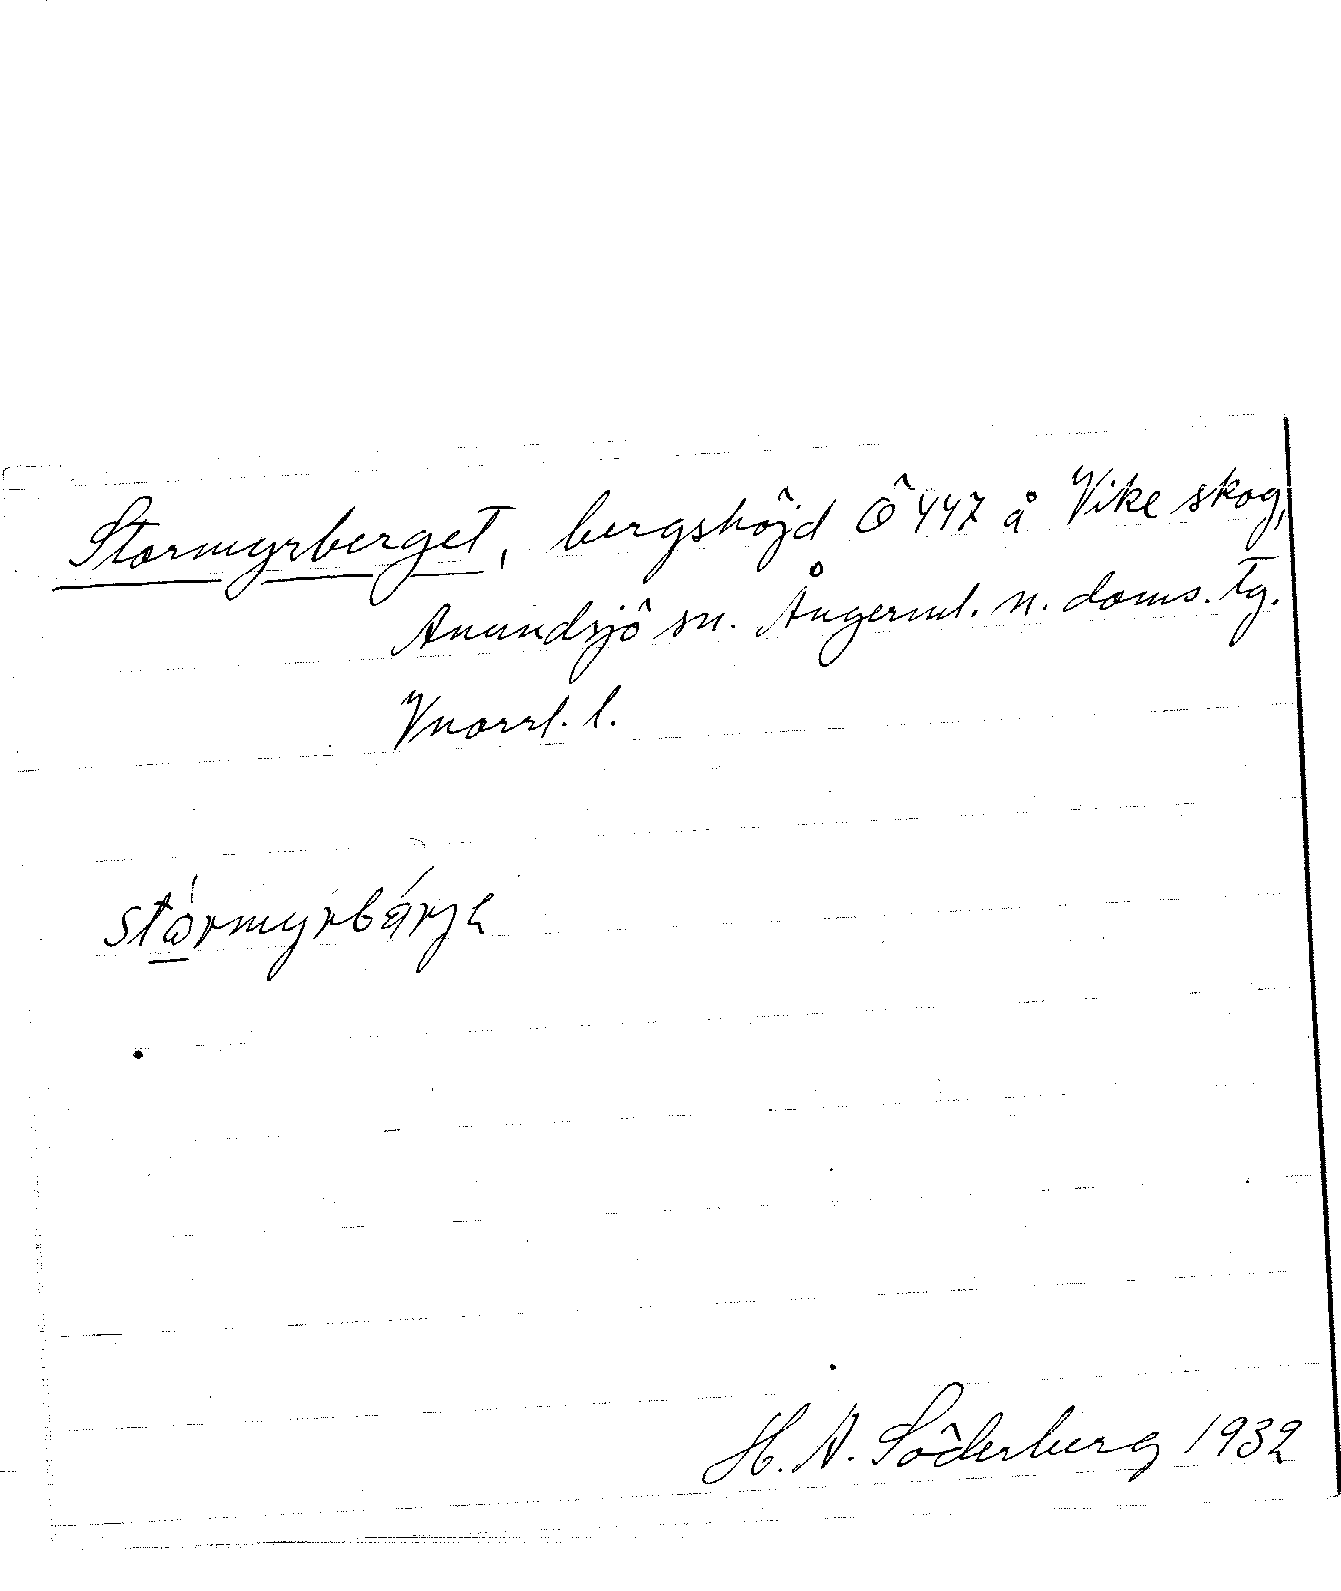 Stormyrberget, bergshöjd Ö 447 å Vike skog,
Anundsjö sn. Ångerml. n. doms. tg.
Vnorrl. l.
stòrmyrbárjə
H. A. Söderberg 1932